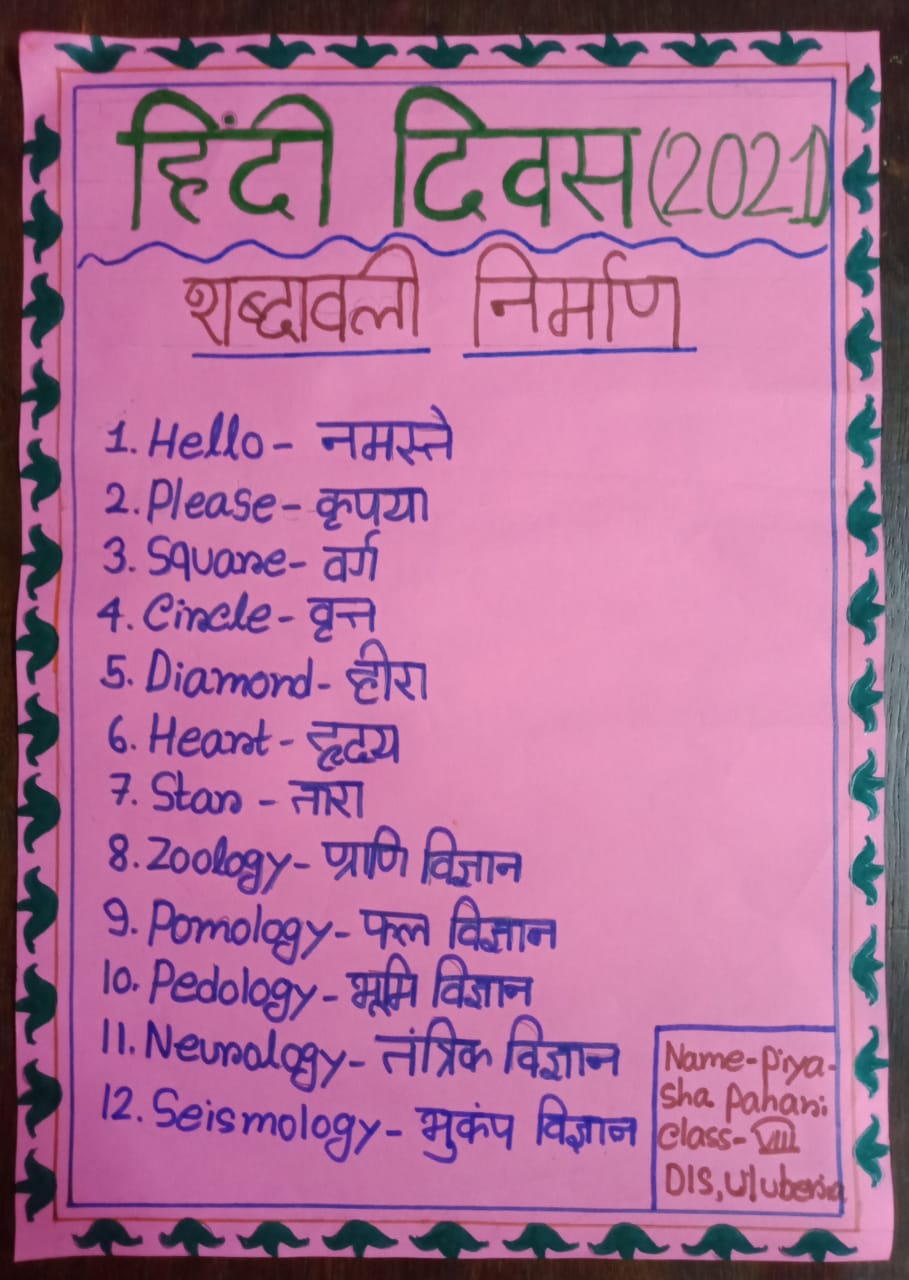 हिंदी दिवस (2021)
शब्दावली निर्माण
1. Hello - नमस्ते
2. Please - कृपया
3. Square - वर्ग
4. Circle - वृत्त
5. Diamond - हीरा
6. Heart - हृदय
7. Star - तारा
8. Zoology - प्राणि विज्ञान
9. Pomology - फल विज्ञान
10. Pedology - भूमि विज्ञान
11. Neurology - तंत्रिक विज्ञान
12. Seismology - भुकंप विज्ञान
Name - Piya-
sha Pahari
Class - VIII
DIS, Uluberia